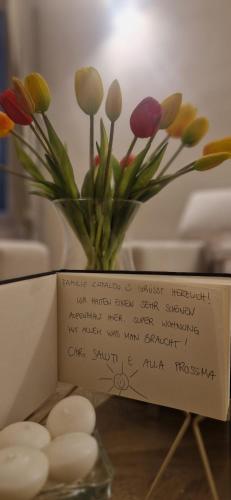 FAMILIE CATALDO GRÜSST HERZLICH!
WIR HATTEN EINEN SEHR SCHÖNEN
AUFENTHALT HIER. SUPER WOHNUNG
MIT ALLEM WAS MAN BRAUCHT!
CARI SALUTI E ALLA PROSSIMA